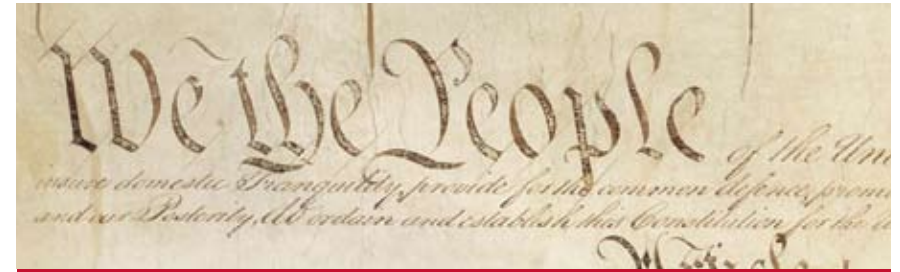 We the People of the Un
insure domestic Tranquility, provide for the common defence, promo
and our Posterity, do ordain and establish this Constitution for the U